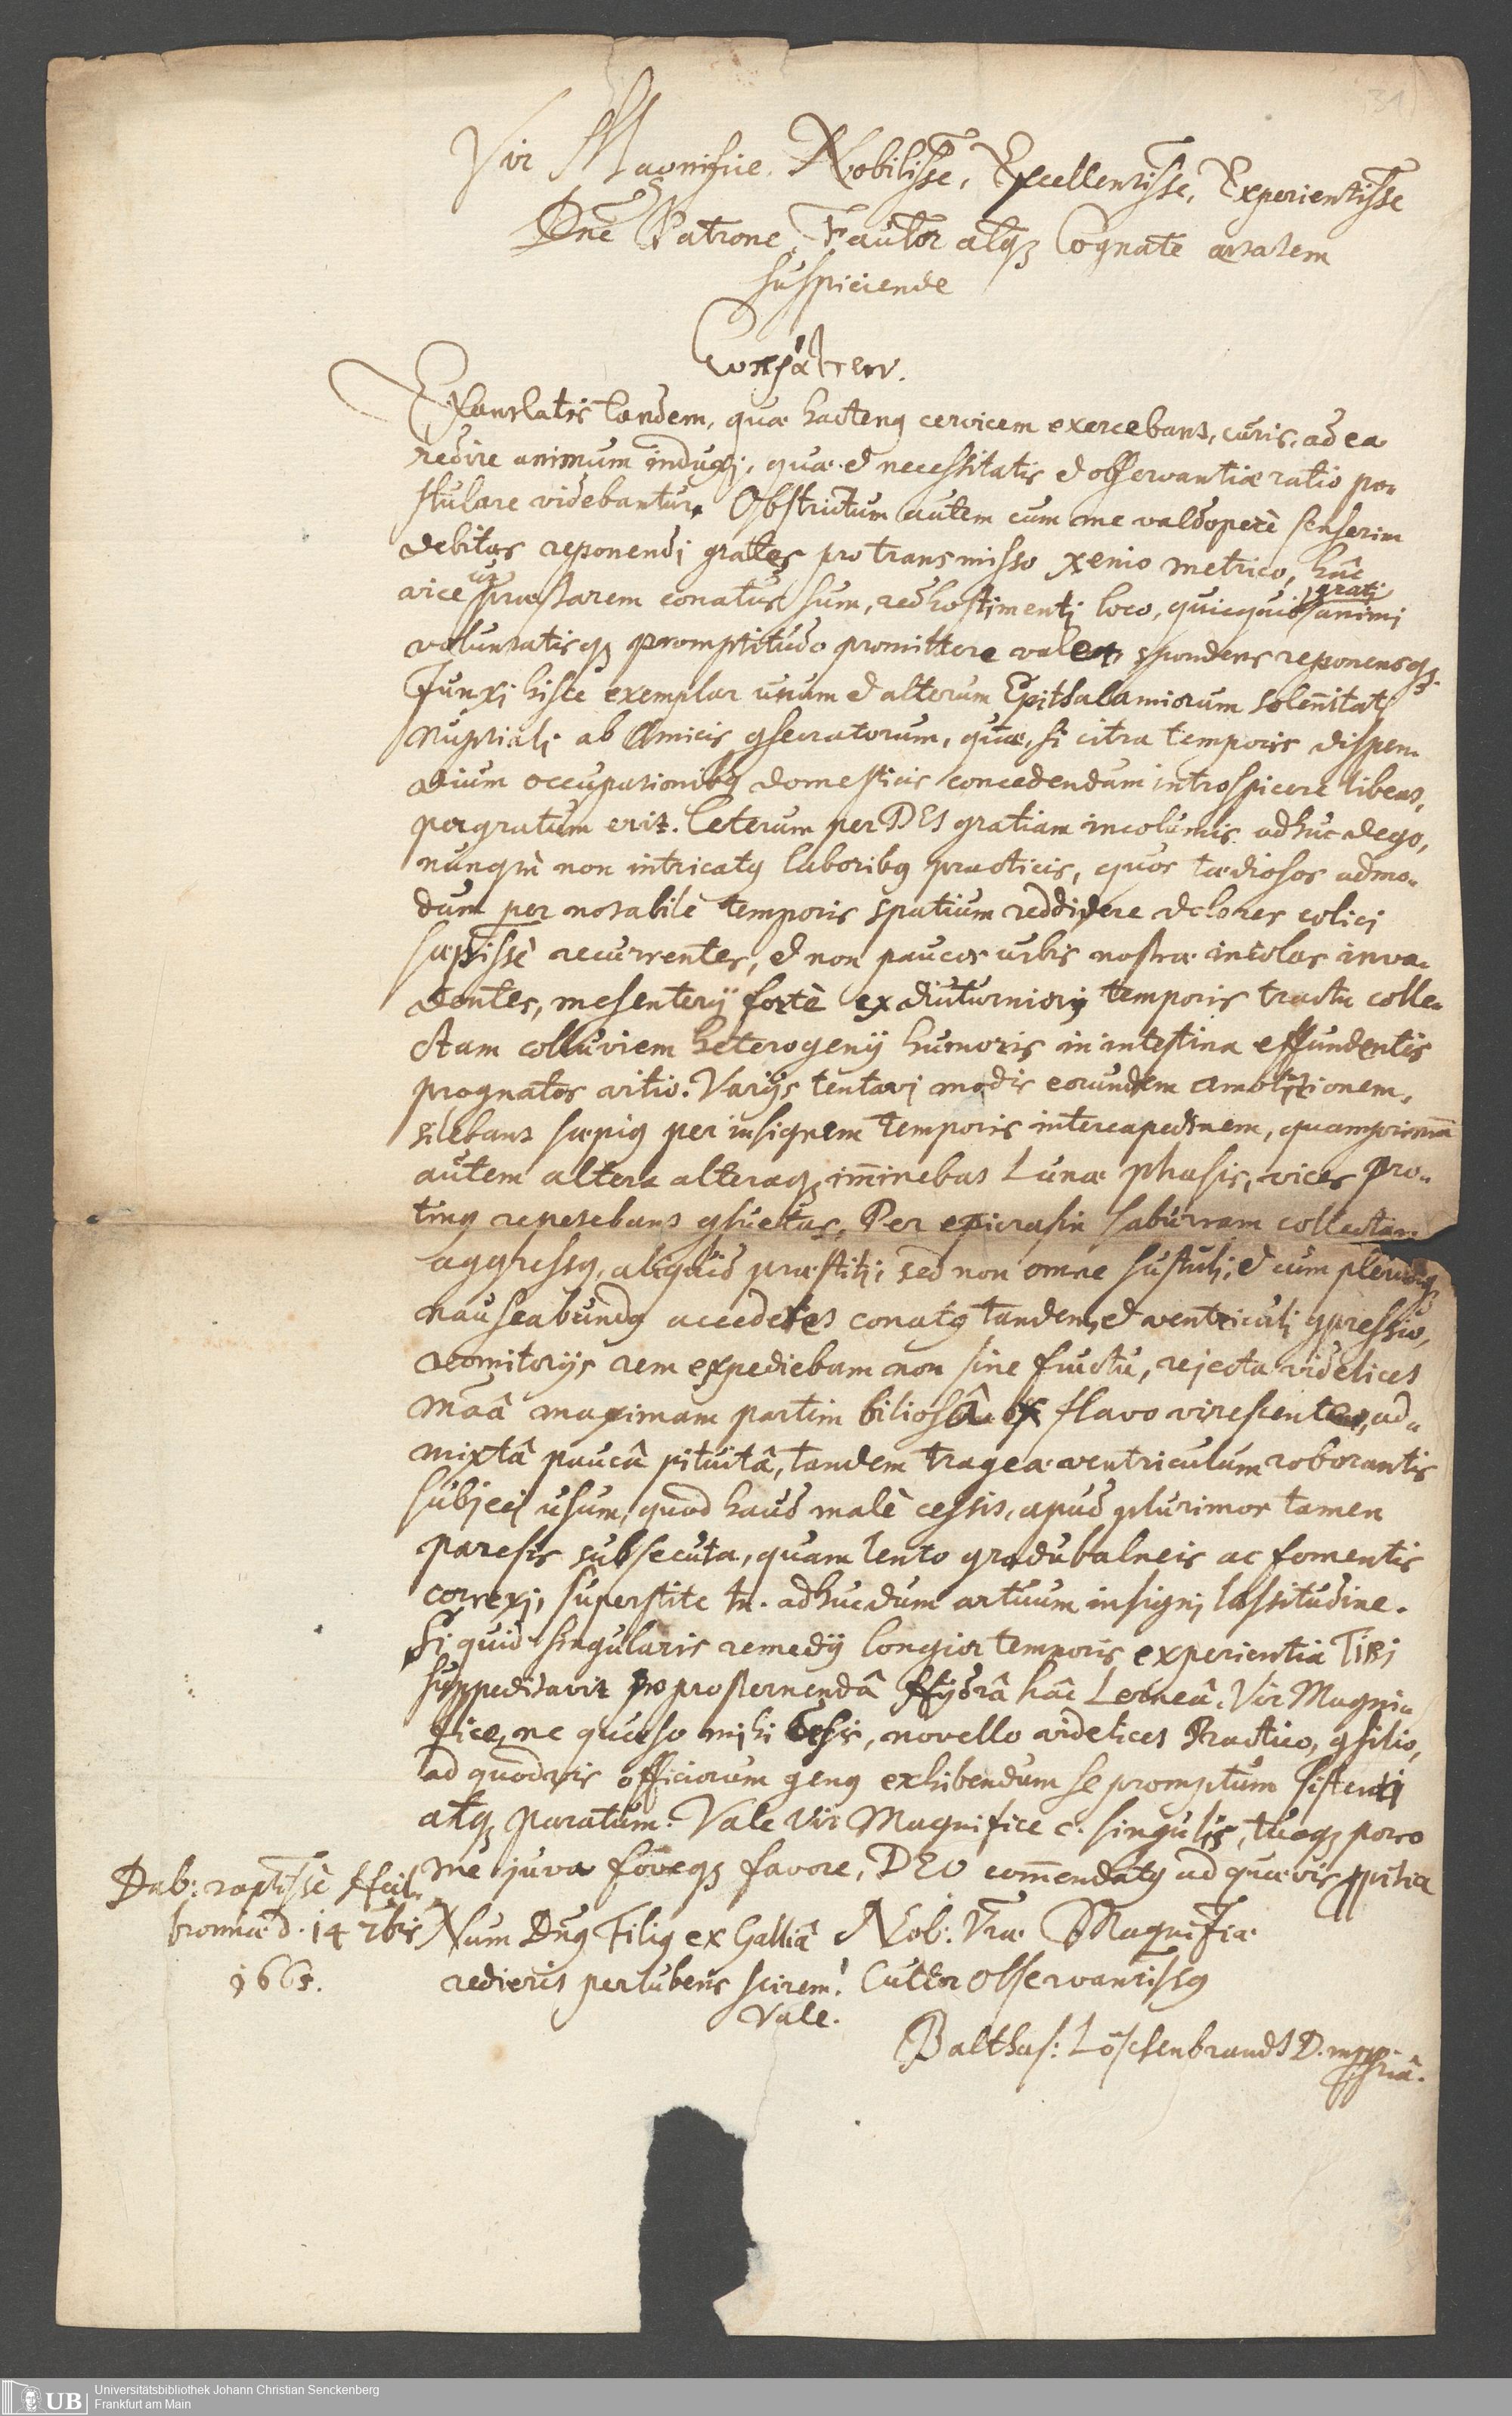 31
Vir Magnifice, Nobilisse, Excellentisse, Experientisse
Dne Patrone, Fautor atq; Cognate ætatem
suspiciende
Exantlatis tandem, quæ hactenq cervicem exercebant, curis, ad ea
redire animum induxi, quæ et necessitatis et observantiæ ratio po-
stulare videbantur. Obstrictum autem cum me valdoperè senserim
debitas reponendi grates pro transmisso xenio metrico, hâc
vice ut præstarem conatus sum, redhostimenti loco, quicquid grati animi
voluntatisq; promptitudo promittere valet, spondens reponensq;.
Junxi hisce exemplar unum et alterum Epithalamiorum solennitati
nuptiali ab Amicis gsecratorum, quæ, si citra temporis dispen-
dium occupationibq domesticis concedendum introspicere libeat,
pergratum erit. Ceterum per DEI gratiam incolumis adhuc dego,
nunqm non intricatq laboribq practicis, quos tædiosos admo-
dum per notabile temporis spatium reddidere dolores colici
sæpissè recurrentes, et non paucos urbis nostræ incolas inva-
dentes, mesenterij fortè ex diuturniorj temporis tractu colle-
ctam colluviem heterogenij humoris in intestina effundentis
prognatos vitio. Varijs tentavi modis eorundem amolitionem,
silebant sæpiq per insignem temporis intercapedinem, quamprimum
autem altera alteraq; imminebat Lunæ phasis, vices pro-
tinq repetebant gsuetas. Per epicrasin saburram collectam
aggressq, aliquid præstiti, sed non omne sustuli, et cum plerumq;
nauseabundq accederet conatq tandem, et ventriculi gpressio,
vomitorijs rem expediebam non sine fructu, rejecta videlicet
maâ maximam partim biliosâ ex flavo virescente, ad-
mixtâ paucâ pituitâ, tandem trageæ ventriculum roborantis
subjeci usum, quod haud malè cessit, apud plurimos tamen
paresis subsecuta, quam lento gradu balneis ac fomentis
correxi, superstite tn. adhucdum artuum insigni lassitudine.
Si quid singularis remedij longior temporis experientia TIBI
suppeditavit pro prosternendâ Hydrâ hâc Lerneâ, Vir Magni-
fice, ne quæso mihi desis, novello videlicet Practico, gsilio,
ad quodvis officiorum genq exhibendum se promptum sistenti
atq; paratum. Vale Vir Magnifice c. singulis, tuoq; porro
me juva foveq; favore, DEO commendatq ad quævis
Dab: raptissè Heil-
bronnæ d. 14 7bris
1665.
Num Dnq Filiq ex Galliâ
redierit perlubens scirem!
Vale.
Nob: Vræ Magnificæ
Cultor observantissq
Balthas: Löschenbrandt D. mpp
Universitätsbibliothek Johann Christian Senckenberg
Frankfurt am Main
UB